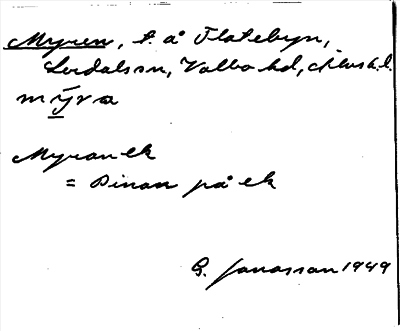 Myren, t. å Flatebyn,
Lerdals sn, Valbo hd, Älvsb. l.
mȳra
Myran ek
= Dinan på ek
G. Jonasson 1949